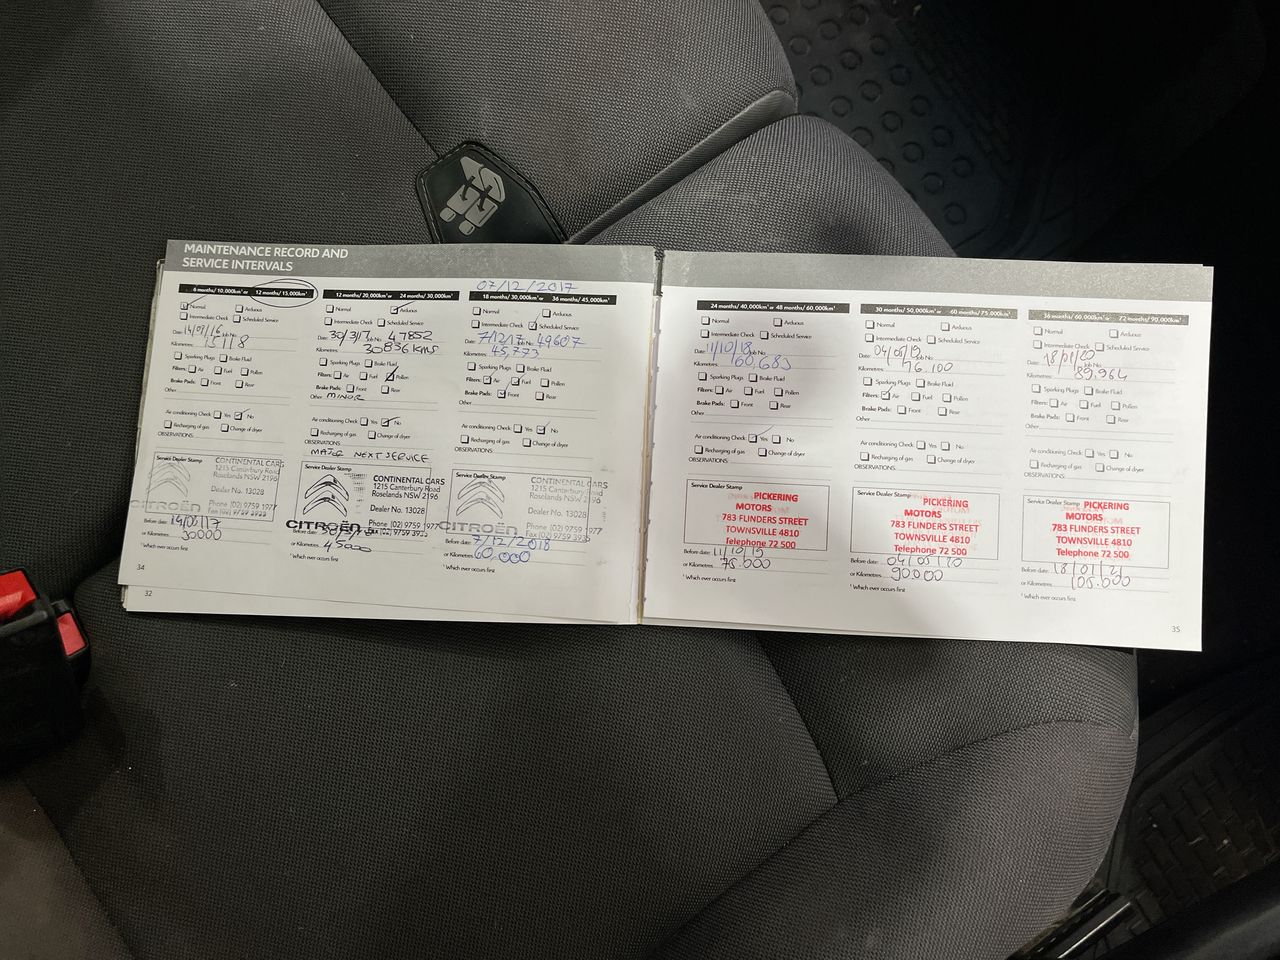 MAINTENANCE RECORD AND
SERVICE INTERVALS
6 months/ 10,000km¹ or 12 months/ 15,000km¹
Normal Arduous
Intermediate Check Scheduled Service
Date: 14/07/16 Job No:
Kilometres: 15118
Sparking Plugs Brake Fluid
Filters: Air Fuel Pollen
Brake Pads: Front Rear
Other
Air conditioning Check Yes No
Recharging of gas Change of dryer
OBSERVATIONS:
Service Dealer Stamp
CONTINENTAL CARS
1215 Canterbury Road
Roselands NSW 2196
Dealer No. 13028
CITROËN
Phone (02) 9759 1977
Fax (02) 9759 3935
Before date:
or Kilometres 30000
¹ Which ever occurs first
34
32
12 months/ 20,000km¹ 24 months/ 30,000km¹
Normal Arduous
Intermediate Check Scheduled Service
Date: 30/3/17 Job No: 47852
Kilometres: 30836 kms
Sparking Plugs Brake Fluid
Filters: Air Fuel Pollen
Brake Pads: Front Rear
Other MINOR
Air conditioning Check Yes No
Recharging of gas Change of dryer
OBSERVATIONS:
MAJOR NEXT SERVICE
Service Dealer Stamp
CONTINENTAL CARS
1215 Canterbury Road
Roselands NSW 2196
Dealer No. 13028
CITROËN
Phone (02) 9759 1977
Fax (02) 9759 3935
Before date:
or Kilometres 45000
¹ Which ever occurs first
07/12/2017
18 months/ 30,000km¹ or 36 months/ 45,000km¹
Normal Arduous
Intermediate Check Scheduled Service
Date: 7/12/17 Job No: 49607
Kilometres: 45,773
Sparking Plugs Brake Fluid
Filters: Air Fuel Pollen
Brake Pads: Front Rear
Other
Air conditioning Check Yes No
Recharging of gas Change of dryer
OBSERVATIONS:
Service Dealer Stamp
CONTINENTAL CARS
1215 Canterbury Road
Roselands NSW 2196
Dealer No. 13028
CITROËN
Phone (02) 9759 1977
Fax (02) 9759 3935
Before date: 7/12/2018
or Kilometres 60,000
¹ Which ever occurs first
24 months/ 40,000km¹ or 48 months/ 60,000km¹
Normal Arduous
Intermediate Check Scheduled Service
Date: 11/10/18 Job No:
Kilometres: 60,683
Sparking Plugs Brake Fluid
Filters: Air Fuel Pollen
Brake Pads: Front Rear
Other
Air conditioning Check Yes No
Recharging of gas Change of dryer
OBSERVATIONS:
Service Dealer Stamp
PICKERING
MOTORS
783 FLINDERS STREET
TOWNSVILLE 4810
Telephone 72 500
Before date: 11/10/19
or Kilometres 75.000
¹ Which ever occurs first
30 months/ 50,000km¹ 60 months/ 75,000km¹
Normal Arduous
Intermediate Check Scheduled Service
Date: Job No:
Kilometres: 76.100
Sparking Plugs Brake Fluid
Filters: Air Fuel Pollen
Brake Pads: Front Rear
Other
Air conditioning Check Yes No
Recharging of gas Change of dryer
OBSERVATIONS:
Service Dealer Stamp
PICKERING
MOTORS
783 FLINDERS STREET
TOWNSVILLE 4810
Telephone 72 500
Before date: 04/05/20
or Kilometres 90.000
¹ Which ever occurs first
36 months/ 60,000km¹ 72 months/ 90,000km¹
Normal Arduous
Intermediate Check Scheduled Service
Date: 18/01/20 Job No:
Kilometres: 89.964
Sparking Plugs Brake Fluid
Filters: Air Fuel Pollen
Brake Pads: Front Rear
Other
Air conditioning Check Yes No
Recharging of gas Change of dryer
OBSERVATIONS:
Service Dealer Stamp
PICKERING
MOTORS
783 FLINDERS STREET
TOWNSVILLE 4810
Telephone 72 500
Before date: 18/01/21
or Kilometres 105.000
¹ Which ever occurs first
35